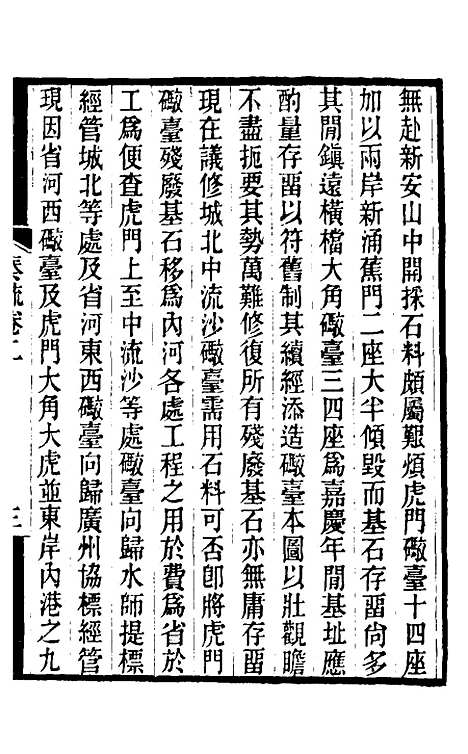 無赴新安山中開採石料頗屬艱煩虎門礮臺十四座
加以兩岸新涌蕉門二座大半傾毀而基石存畱尙多
其閒鎭遠橫檔大角礮臺三四座爲嘉慶年閒基址應
酌量存畱以符舊制其續經添造礮臺本圖以壯觀瞻
不盡扼要其勢萬難修復所有殘廢基石亦無庸存畱
現在議修城北中流沙礮臺需用石料可否卽將虎門
礮臺殘廢基石移爲內河各處工程之用於費爲省於
工爲便查虎門上至中流沙等處礮臺向歸水師提標
經管城北等處及省河東西礮臺向歸廣州協標經管
現因省河西礮臺及虎門大角大虎並東岸內港之九
奏疏卷二
三